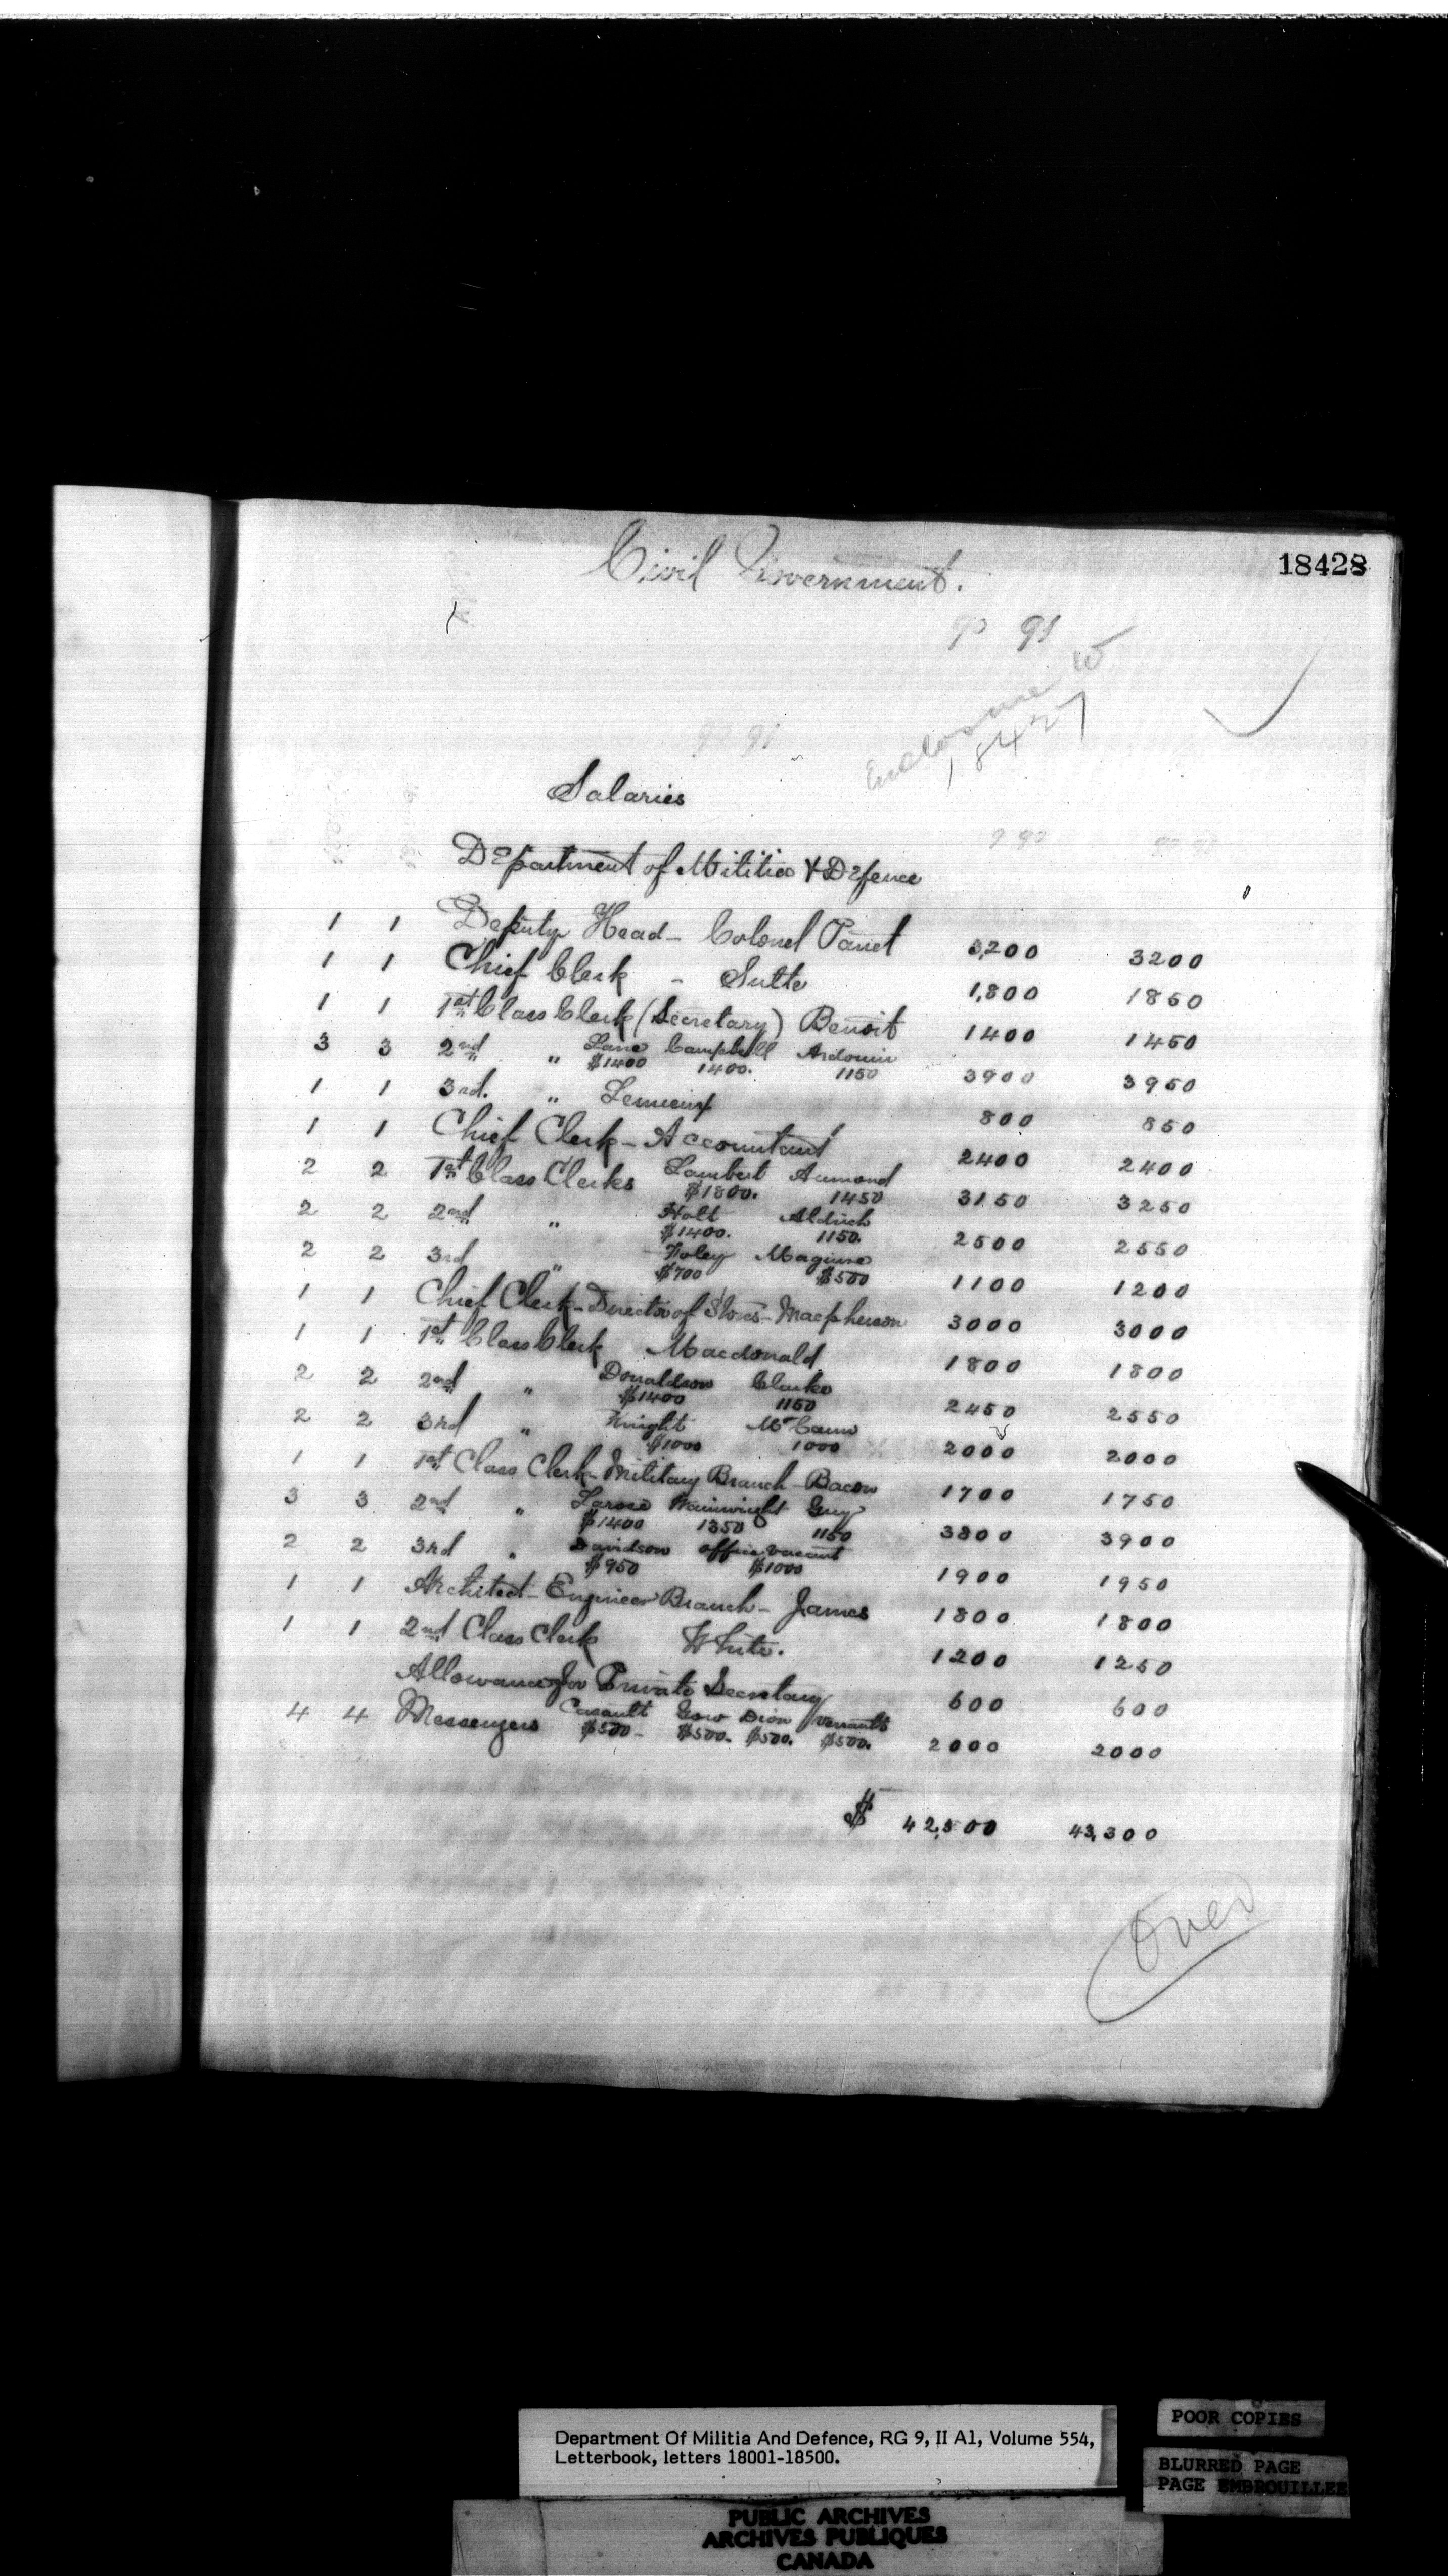 18428
Civil Government.
90 91
Enclosure to
18427
Salaries
Department of Militia & Defence
1 1 Deputy Head - Colonel Panet 3,200 3200
1 1 Chief Clerk - Sulte 1,800 1850
1 1 1st Class Clerk (Secretary) Benoit 1400 1450
3 3 2nd " Lane Campbell Ardouin 3900 3950
$1400 1400. 1150
1 1 3rd. " Lemieux 800 850
1 1 Chief Clerk - Accountant 2400 2400
2 2 1st Class Clerks Lambert Aumond 3150 3250
$1800. 1450
2 2 2nd " Holt Aldrich 2500 2550
$1400. 1150.
2 2 3rd " Foley Maguire 1100 1200
$700 $500
1 1 Chief Clerk - Director of Stores - Macpherson 3000 3000
1 1 1st Class Clerk Macdonald 1800 1800
2 2 2nd " Donaldson Clarke 2450 2550
$1400 1150
2 2 3rd " Knight McCann 2000 2000
$1000 1000
1 1 1st Class Clerk - Military Branch - Bacon 1700 1750
3 3 2nd " Larose Wainwright Guy 3800 3900
$1400 1350 1150
2 2 3rd " Davidson office vacant 1900 1950
$950 $1000
1 1 Architect - Engineer Branch - James 1800 1800
1 1 2nd Class Clerk White. 1200 1250
Allowance for Private Secretary 600 600
4 4 Messengers Casault Gow Dion Verrault 2000 2000
$500 - $500 - $500. $500.
$ 42,500 43,300
Over
Department Of Militia And Defence, RG 9, II A1, Volume 554,
Letterbook, letters 18001-18500.
POOR COPIES
BLURRED PAGE
PAGE EMBROUILLEE
PUBLIC ARCHIVES
ARCHIVES PUBLIQUES
CANADA